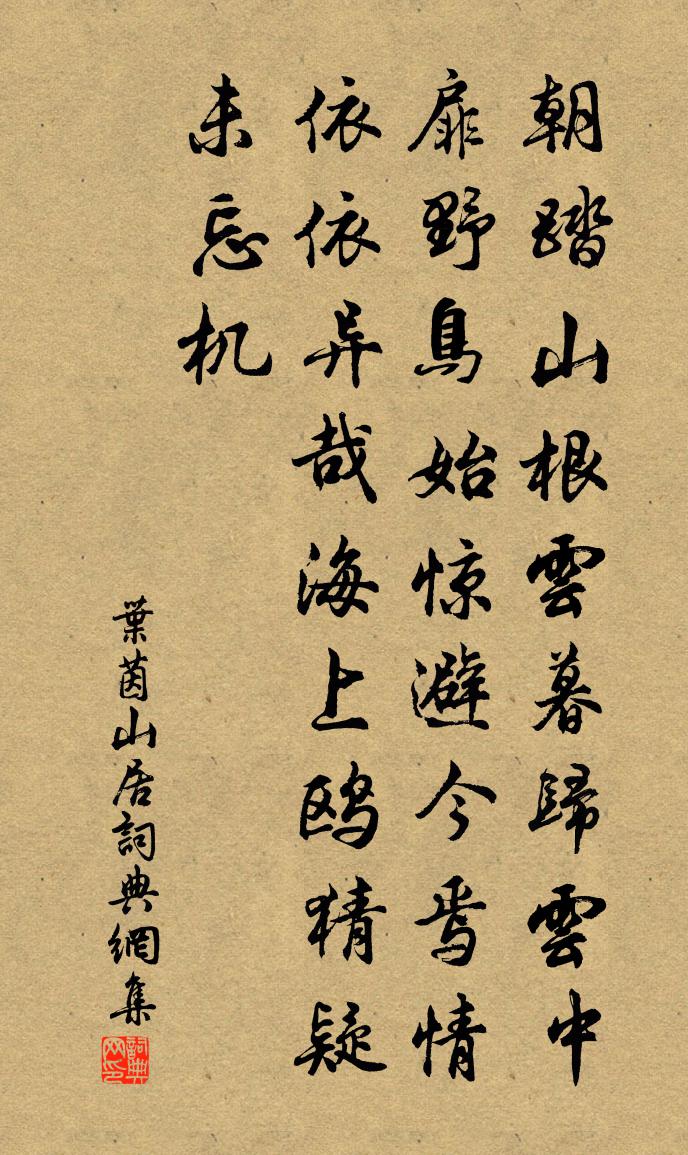 朝踏山根雲暮歸雲中
扉野鳥始惊避今焉情
依依异哉海上鸥猜疑
未忘机
葉茵山居詞典網集
詞典网印